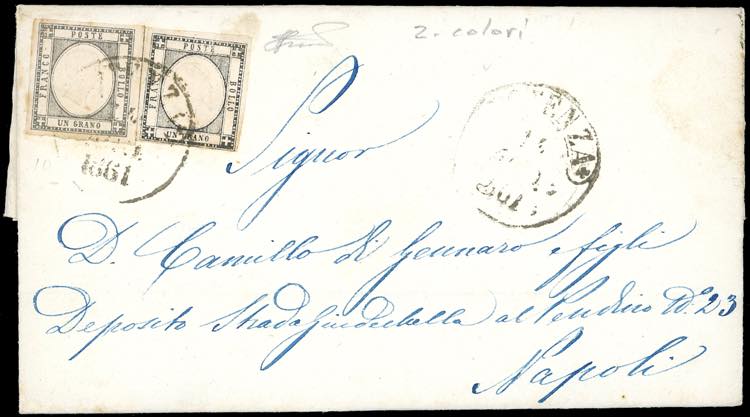 2. colori
POSTE
FRANCO
BOLLO
UN GRANO
POSTE
FRANCO
BOLLO
UN GRANO
1861
ENZA
Signor
D. Camillo di Gennaro e figli
Deposito Strada al Pendino N.º 23
Napoli